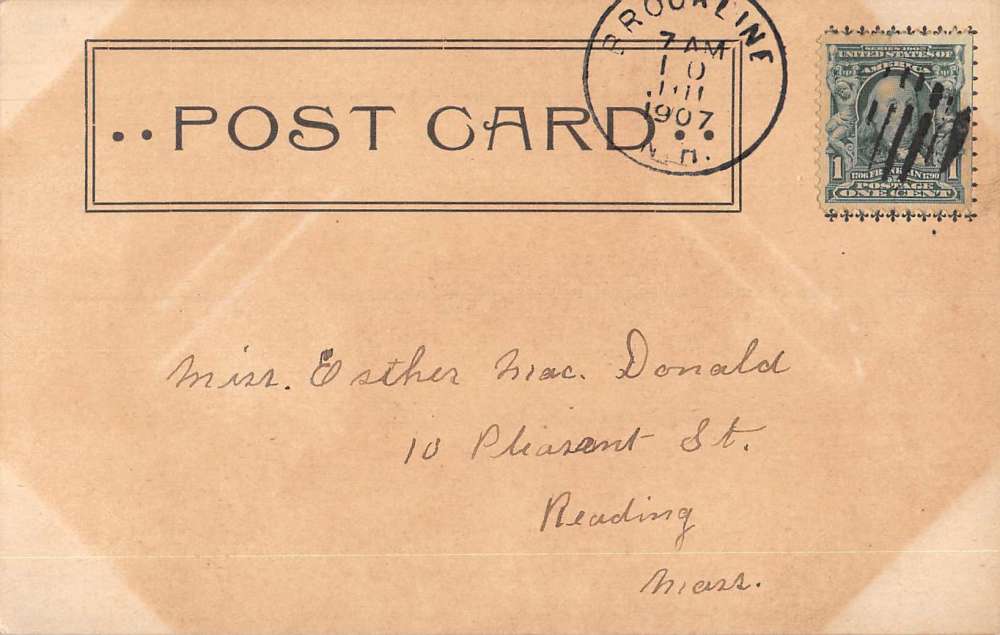 BROOKLINE
7 AM
10
JUL
1907
N.H.
POST CARD
SERIES 1902
UNITED STATES OF
AMERICA
1 1
1706 FRANKLIN 1790
POSTAGE
ONE CENT
Miss. Esther Mac. Donald
10 Pleasant St.
Reading
Mass.